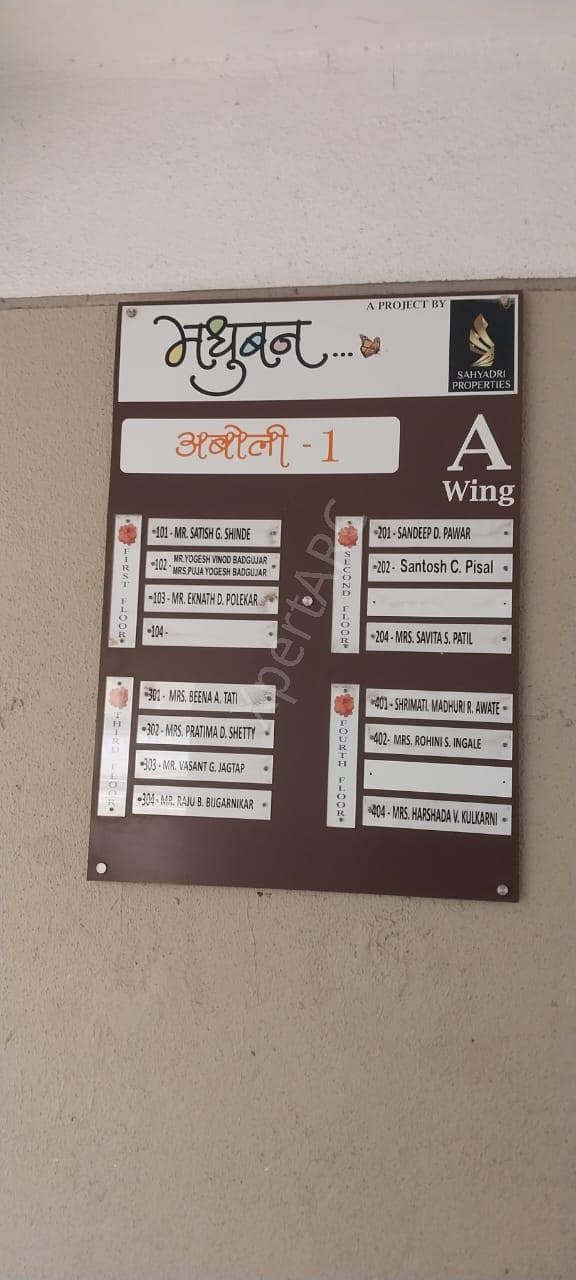 A PROJECT BY
मधुबन...
SAHYADRI
PROPERTIES
अबोली - 1
A
Wing
FIRST FLOOR
101 - MR. SATISH G. SHINDE
102 - MR.YOGESH VINOD BADGUJAR
MRS.PUJA YOGESH BADGUJAR
103 - MR. EKNATH D. POLEKAR
104 -
SECOND FLOOR
201 - SANDEEP D. PAWAR
202 - Santosh C. Pisal
204 - MRS. SAVITA S. PATIL
THIRD FLOOR
301 - MRS. BEENA A. TATI
302 - MRS. PRATIMA D. SHETTY
303 - MR. VASANT G. JAGTAP
304 - MR. RAJU B. BIJGARNIKAR
FOURTH FLOOR
401 - SHRIMATI. MADHURI R. AWATE
402- MRS. ROHINI S. INGALE
404 - MRS. HARSHADA V. KULKARNI